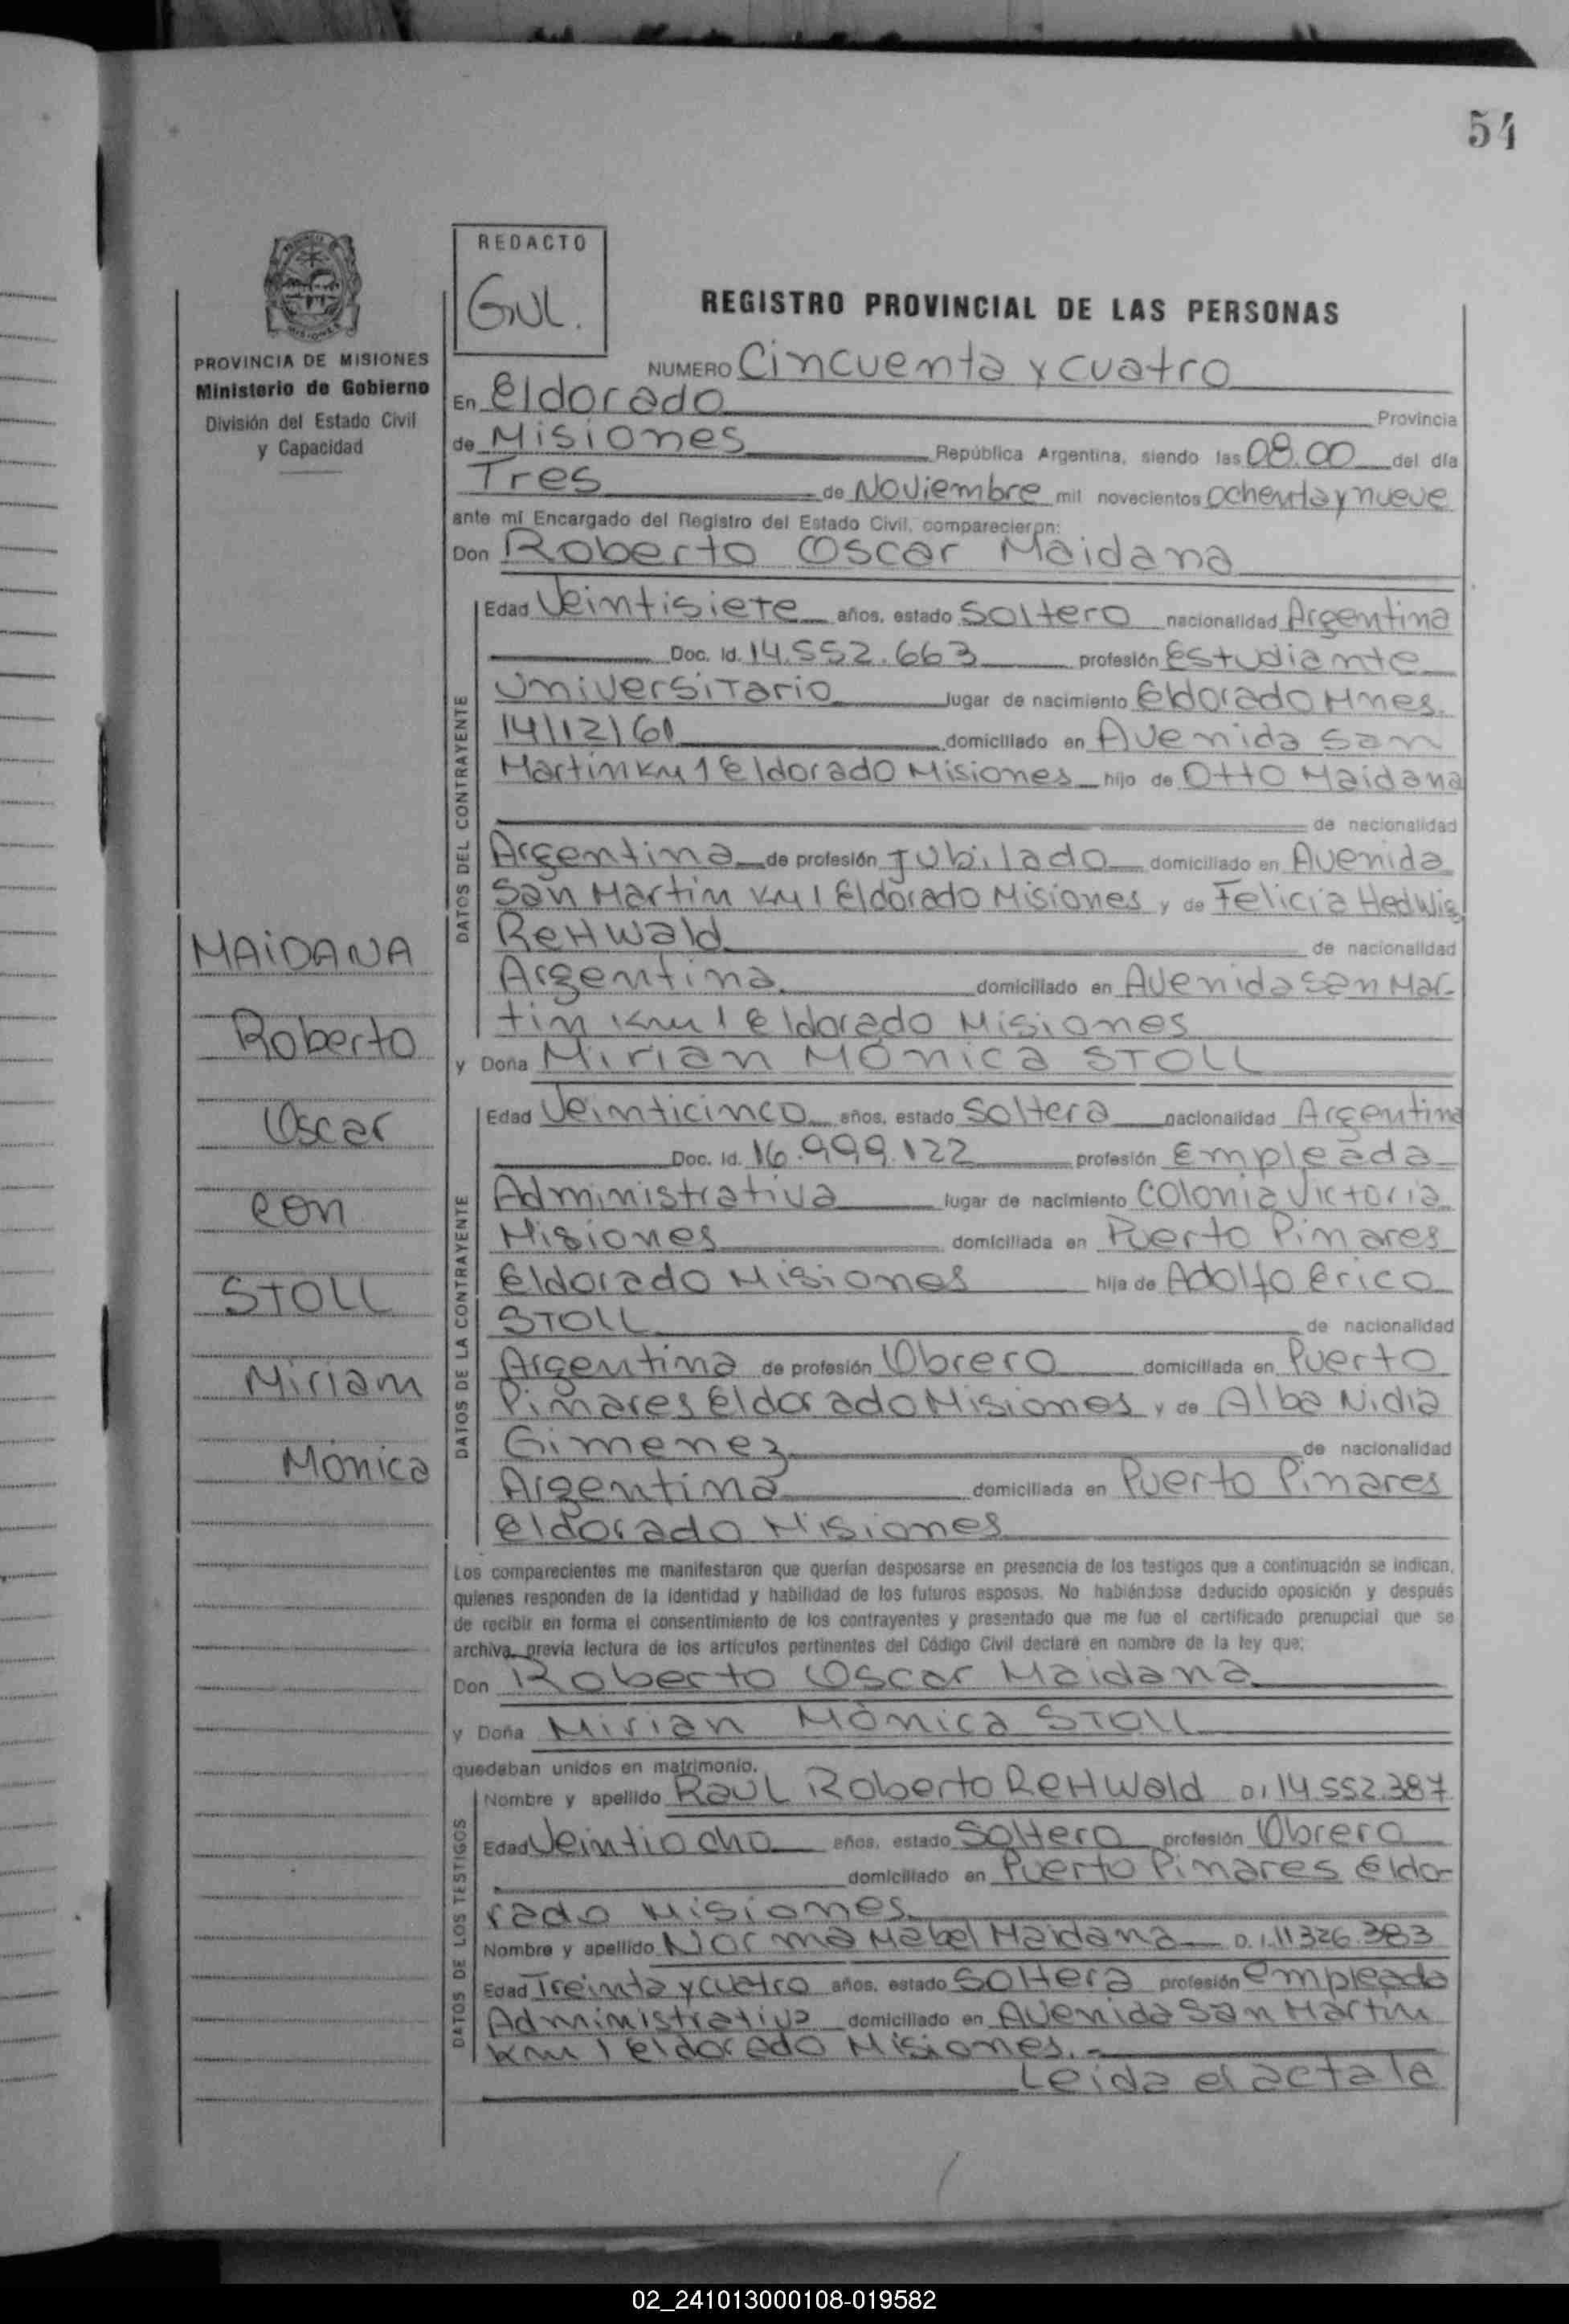 54
REDACTO
GUL.
PROVINCIA DE MISIONES
Ministerio de Gobierno
División del Estado Civil
y Capacidad
REGISTRO PROVINCIAL DE LAS PERSONAS
NUMERO Cincuenta y cuatro
En Eldorado Provincia
de Misiones República Argentina, siendo las 08.00 del día
Tres de Noviembre mil novecientos ochenta y nueve
ante mí Encargado del Registro del Estado Civil, comparecieron:
Don Roberto Oscar Maidana
DATOS DEL CONTRAYENTE
Edad Veintisiete años, estado Soltero nacionalidad Argentina
Doc. Id. 14.552.663 profesión Estudiante
Universitario lugar de nacimiento Eldorado Mnes.
14/12/61 domiciliado en Avenida San
Martin KM 1 Eldorado Misiones hijo de Otto Maidana
de nacionalidad
Argentina de profesión Jubilado domiciliado en Avenida
San Martin KM 1 Eldorado Misiones y de Felicia Hedwig
ReHwald de nacionalidad
Argentina domiciliado en Avenida San Mar-
tin Km 1 Eldorado Misiones
y Doña Mirian Mónica STOLL
DATOS DE LA CONTRAYENTE
Edad Veinticinco años, estado Soltera nacionalidad Argentina
Doc. Id. 16.999.122 profesión Empleada
Administrativa lugar de nacimiento Colonia Victoria
Misiones domiciliada en Puerto Pinares
Eldorado Misiones hija de Adolfo Erico
STOLL de nacionalidad
Argentina de profesión Obrero domiciliada en Puerto
Pinares Eldorado Misiones y de Alba Nidia
Gimenez de nacionalidad
Argentina domiciliada en Puerto Pinares
Eldorado Misiones
MAIDANA
Roberto
Oscar
con
STOLL
Miriam
Mónica
Los comparecientes me manifestaron que querían desposarse en presencia de los testigos que a continuación se indican,
quienes responden de la identidad y habilidad de los futuros esposos. No habiéndose deducido oposición y después
de recibir en forma el consentimiento de los contrayentes y presentado que me fue el certificado prenupcial que se
archiva, previa lectura de los artículos pertinentes del Código Civil declaré en nombre de la ley que:
Don Roberto Oscar Maidana
y Doña Mirian Mónica STOLL
quedaban unidos en matrimonio.
DATOS DE LOS TESTIGOS
Nombre y apellido Raul Roberto ReHwald D.I 14.552.387
Edad Veintiocho años, estado Soltero profesión Obrero
domiciliado en Puerto Pinares Eldo-
rado Misiones
Nombre y apellido Norma Mabel Maidana D.I. 11.326.383
Edad Treinta y cuatro años, estado Soltera profesión Empleada
Administrativa domiciliado en Avenida San Martin
Km 1 Eldorado Misiones.-
Leida el acta la
02_241013000108-019582